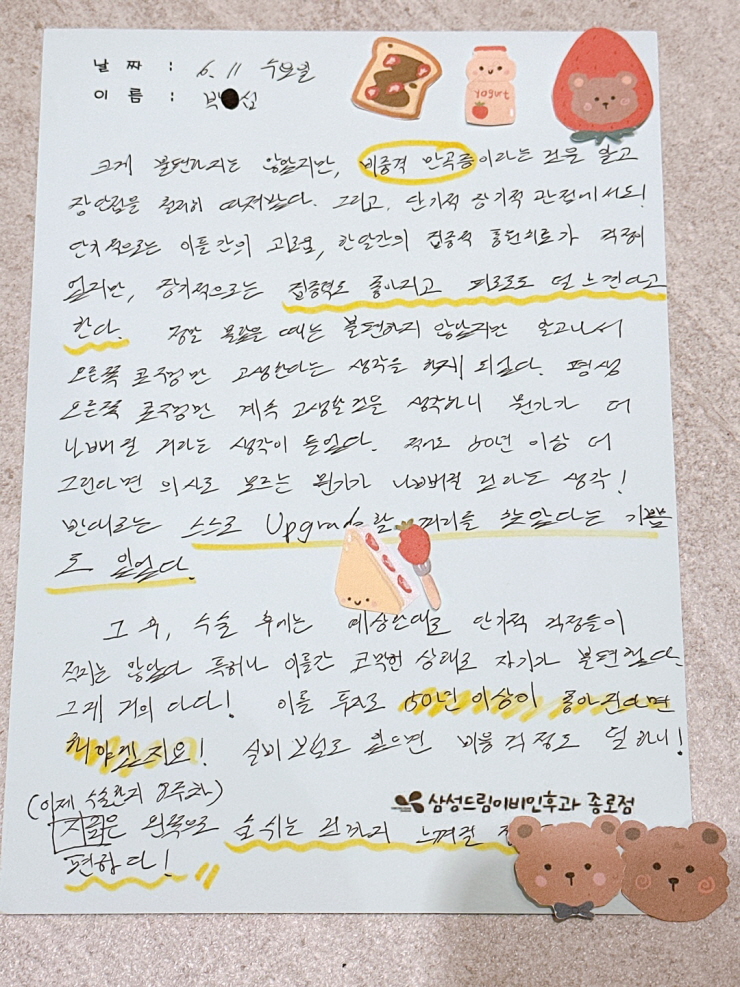 날 짜 : 6. 11 수요일
이 름 : 박 성
Yogurt
크게 불편하지는 않았지만, 비중격 만곡증이라는 것을 알고
장단점을 철저히 따져봤다. 그리고, 단기적 장기적 관점에서도!
단기적으로는 이틀간의 괴로움, 한달간의 집중적 통원치료가 걱정이
었지만, 장기적으로는 집중력도 좋아지고 피로도도 덜 느낀다고
한다. 정말 몰랐을 때는 불편하지 않았지만 알고나서
오른쪽 콧구멍만 고생한다는 생각을 하게 되었다. 평생
오른쪽 콧구멍만 계속 고생할 것을 생각하니 뭔가가 더
나빠질 거라는 생각이 들었다. 적어도 60년 이상 더
그런다면 의식으로 모르는 뭔가가 나빠질 거라는 생각!
반대로는 스스로 Upgrade할 꺼리를 찾았다는 기쁨
도 있었다.
그 후, 수술 후에는 예상한대로 단기적 걱정들이
적지는 않았다 특히나 이틀간 코막힌 상태로 자기가 불편했다.
그게 거의 다다! 이틀 투자로 60년 이상이 좋아진다면
해야겠지요! 실비 보험도 있으면 비용 걱정도 덜 하니!
(이제 수술한지 8주차)
지금은 왼쪽으로 숨 쉬는 것까지 느껴질
편하다!
삼성드림이비인후과 종로점